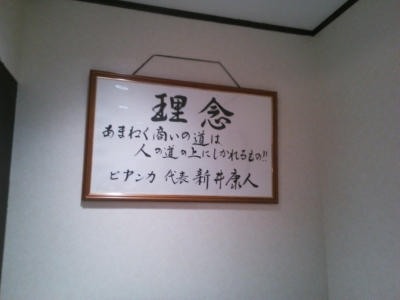 理念
あまねく商いの道は
人の道の上にしかれるもの!!
ビヤンカ 代表 新井康人